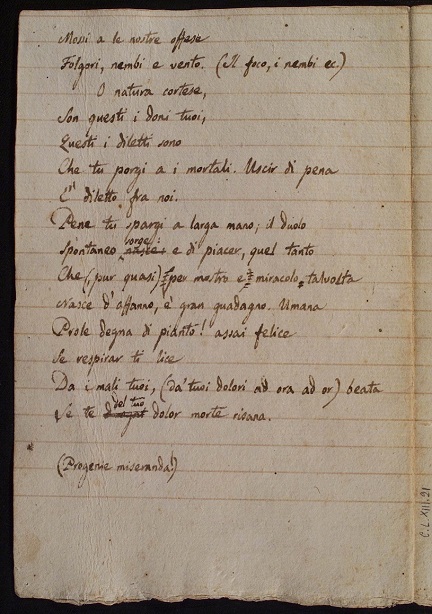 Mossi a le nostre offese
Folgori, nembi e vento. (Il foco, i nembi ec.)
O natura cortese,
Son questi i doni tuoi,
Questi i diletti sono
Che tu porgi a i mortali. Uscir di pena
E' diletto fra noi.
Pene tu spargi a larga mano; il duolo
sorge:
Spontaneo e di piacer, quel tanto
Che (, pur quasi) per mostro e miracolo talvolta
Nasce d'affanno, è gran guadagno. Umana
Prole degna di pianto! assai felice
Se respirar ti lice
Da i mali tuoi, (da' tuoi dolori ad ora ad or) beata
del tuo
Se te dolor morte risana.
(Progenie miseranda!)
C.L.XIII.21